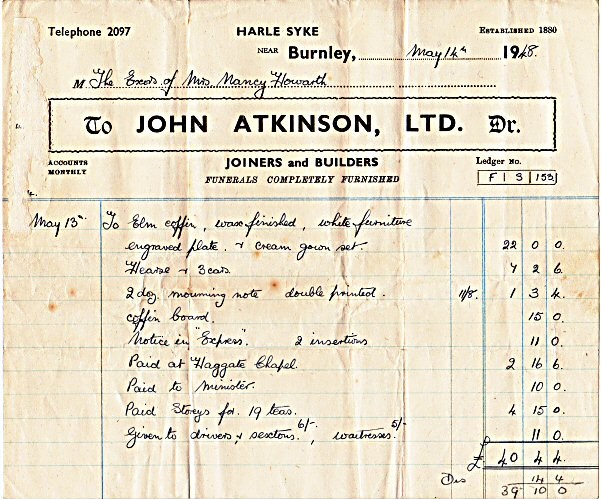 Telephone 2097
HARLE SYKE
ESTABLISHED 1880
NEAR Burnley, May 14th 1948.
M The Excors of Mrs Nancy Howarth
To JOHN ATKINSON, LTD. Dr.
ACCOUNTS MONTHLY
JOINERS and BUILDERS
FUNERALS COMPLETELY FURNISHED
Ledger No.
F | 3 | 153
May 13th To Elm coffin, wax finished, white furniture
engraved plate. & cream gown set. 22 0 0.
Hearse & 3 cars 7 2 6.
2 doz. mourning note double printed. 11/8. 1 3 4.
coffin board. 15 0.
Notice in "Express". 2 insertions 11 0.
Paid at Haggate Chapel. 2 16 6.
Paid to Minister. 10 0.
Paid Storeys for 19 teas. 4 15 0.
Given to drivers, & sextons. 6/-, waitresses. 5/- 11 0.
£ 40 4 4
Dis 14 4
39 10 0